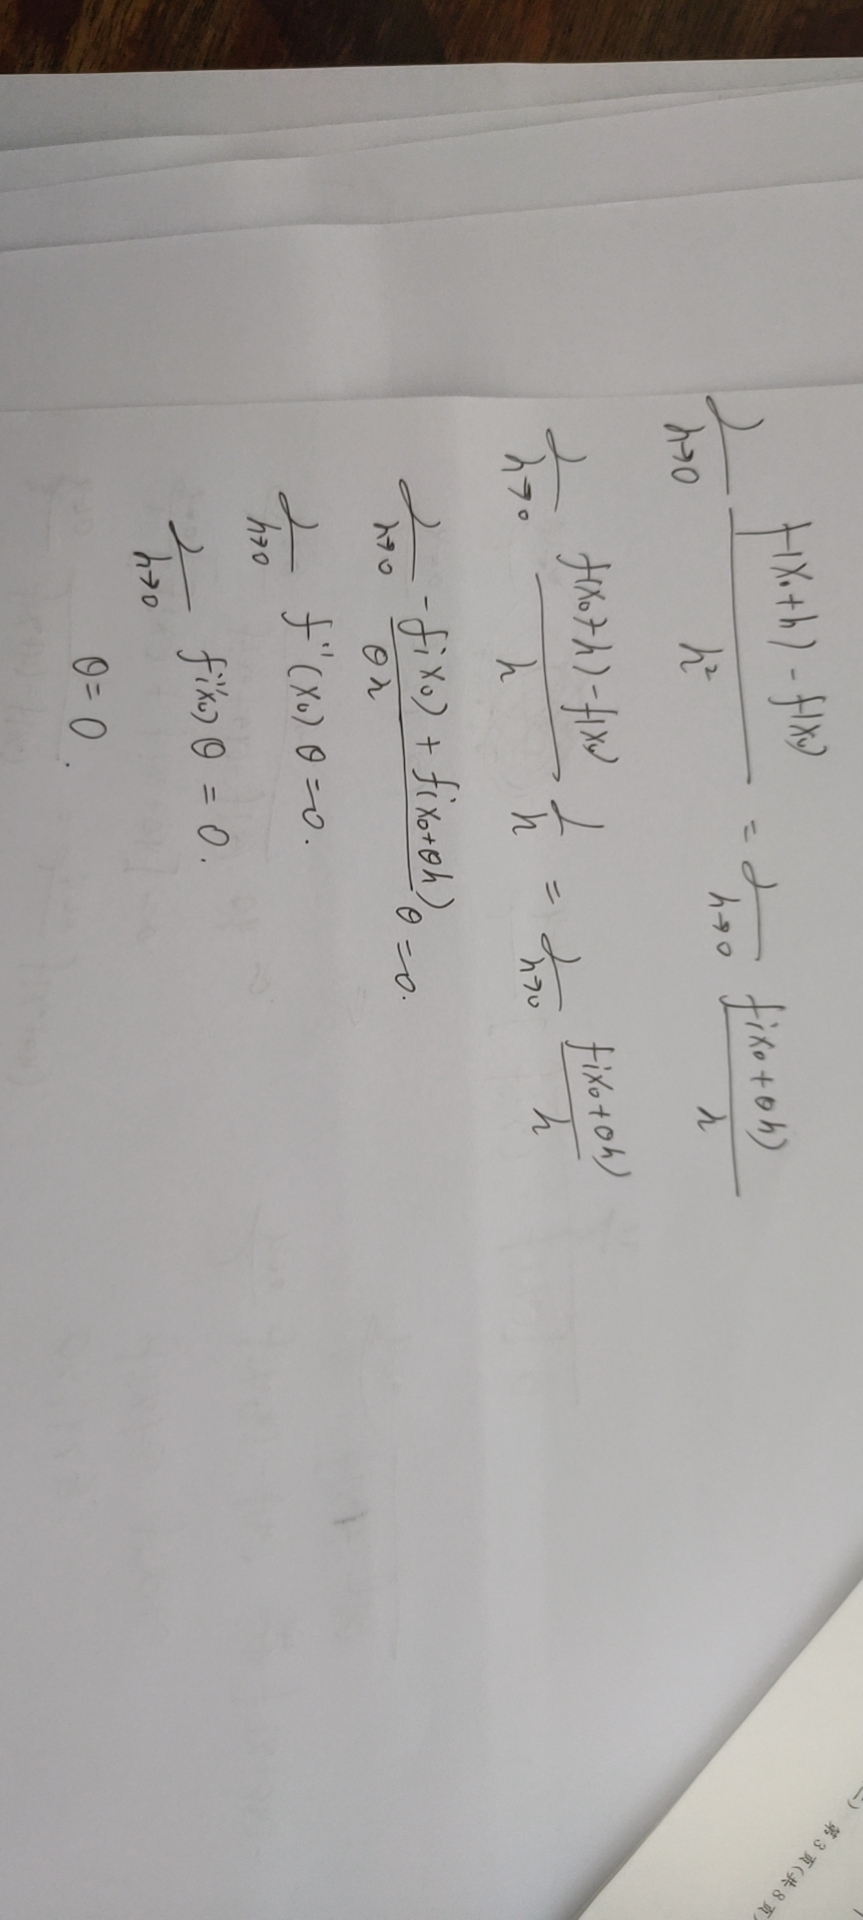 lim_{h→0} \frac{f(x₀+h)-f(x₀)}{h²} = lim_{h→0} \frac{f(x₀+θh)}{h}
lim_{h→0} \frac{f(x₀+h)-f(x₀)}{h} \frac{1}{h} = lim_{h→0} \frac{f(x₀+θh)}{h}
lim_{h→0} \frac{-f(x₀)+f(x₀+θh)}{θh} θ=0.
lim_{h→0} f''(x₀) θ=0.
lim_{h→0} f''(x₀) θ = 0.
θ=0.
第3页(共8页)